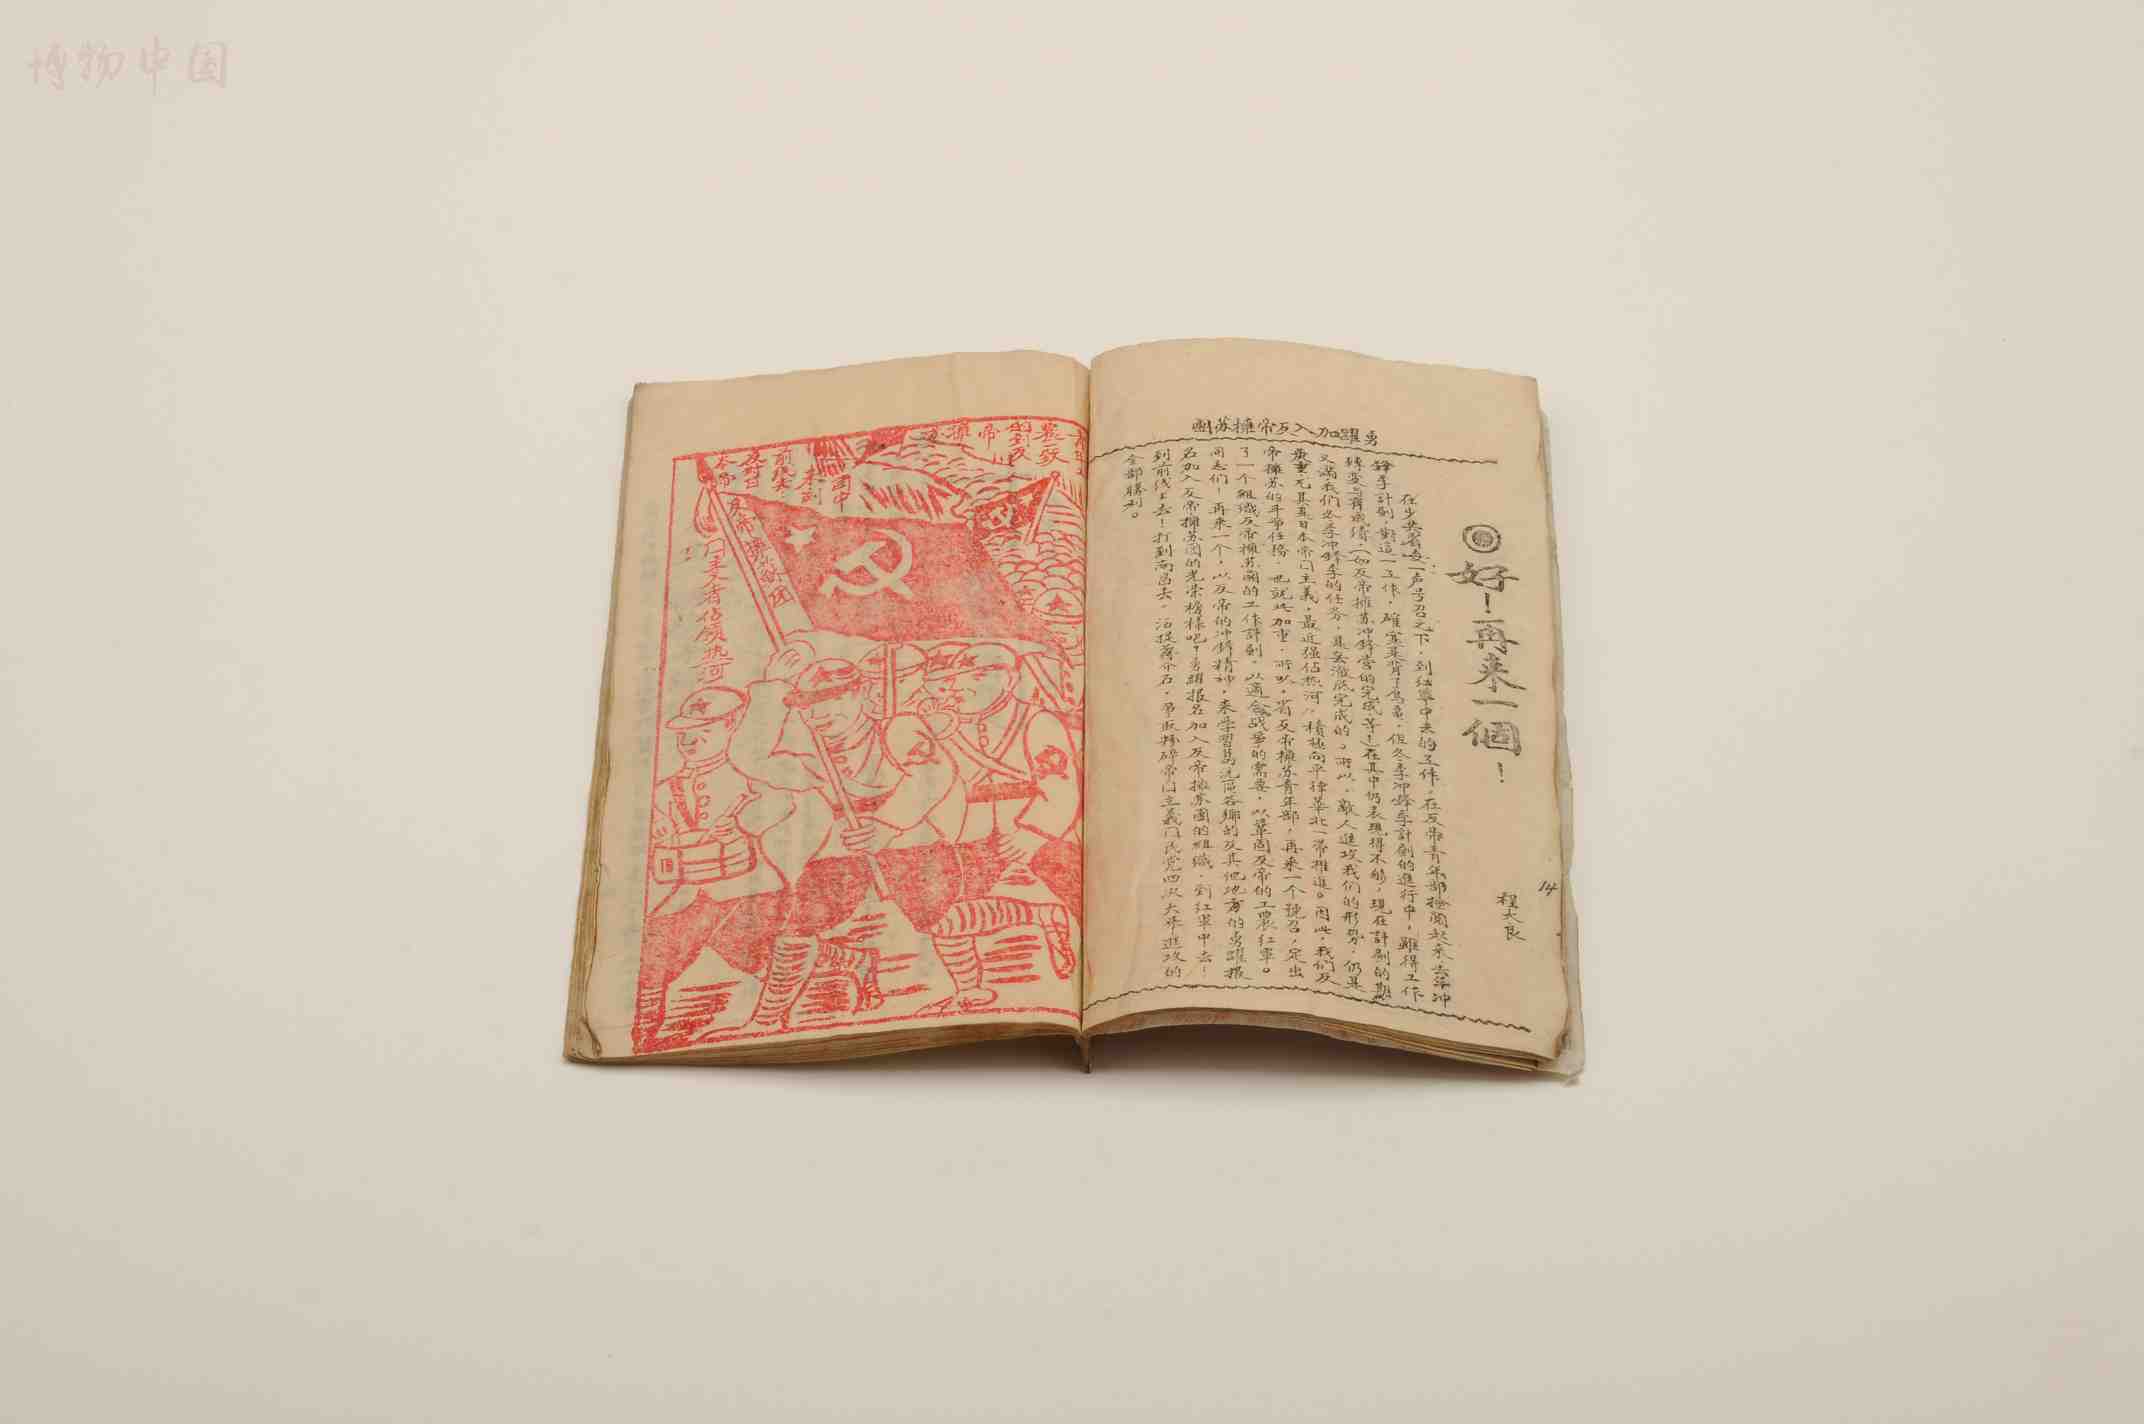 博物中国
勇躍加入反帝擁苏團
好!再来一個!
程大良
14
在少共省委一声号召之下,到红軍中去的工作,在反帝青年部撑開起来,去年冲
鋒季計劃,對這一工作,確实是背了烏龜,但冬季冲鋒季計劃的進行中,雖得工作
轉变与有成绩,(如反帝擁苏冲鋒营的完成等)在其中仍表現得不够,現在計劃的期
又滿我们冬季冲鋒季的任务,是無澈底完成的。所以,敵人進攻我们的形势,仍是
嚴重尤其是日本帝囗主義,最近强佔热河,積極向平津華北一帶推進。因此,我们反
帝擁苏的斗争任務,也就此加重,所以,省反帝擁苏青年部,再来一个號召,定出
了一个組織反帝擁苏團的工作計劃,以適合战争的需要,以鞏固反帝的工農红軍。
同志们!再来一个,以反帝的冲鋒精神,来学習 各鄉的及其他地方的勇躍报
名加入反帝擁苏团的光荣榜樣吧?勇躍报名加入反帝擁苏團的組織,到红軍中去!
到前线上去!打到南昌去,活捉蔣介石,争取粉碎帝囗主義囗民党四次大举進攻的
全部勝利。
反對日
本帝
囗主义者佔领热河
反帝擁苏